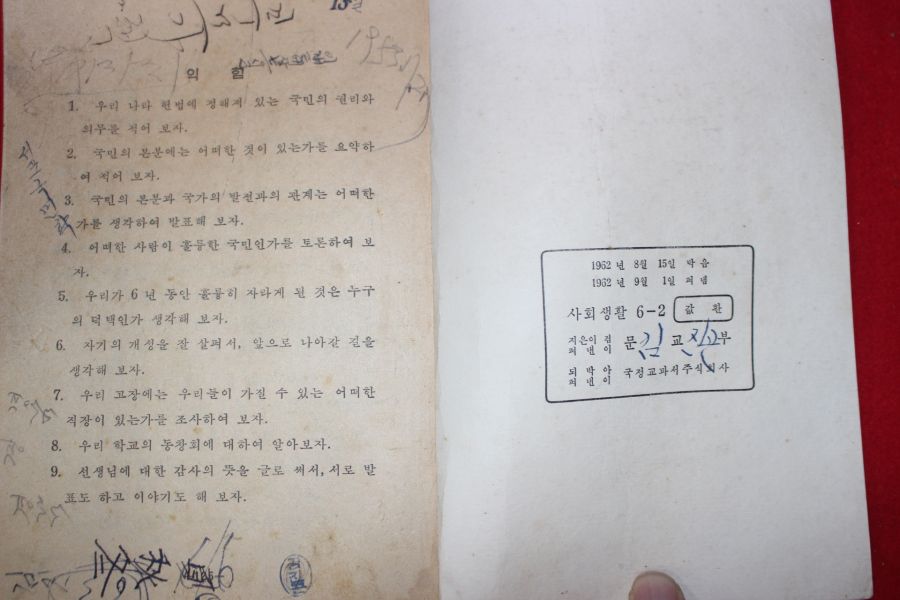 익 힘
1. 우리 나라 헌법에 정해져 있는 국민의 권리와
의무를 적어 보자.
2. 국민의 본분에는 어떠한 것이 있는가를 요약하
여 적어 보자.
3. 국민의 본분과 국가의 발전과의 관계는 어떠한
가를 생각하여 발표해 보자.
4. 어떠한 사람이 훌륭한 국민인가를 토론하여 보
자.
5. 우리가 6년 동안 훌륭히 자라게 된 것은 누구
의 덕택인가 생각해 보자.
6. 자기의 개성을 잘 살펴서, 앞으로 나아갈 길을
생각해 보자.
7. 우리 고장에는 우리들이 가질 수 있는 어떠한
직장이 있는가를 조사하여 보자.
8. 우리 학교의 동창회에 대하여 알아보자.
9. 선생님에 대한 감사의 뜻을 글로 써서, 서로 발
표도 하고 이야기도 해 보자.
1962년 8월 15일 박음
1962년 9월 1일 펴냄
사회생활 6-2 값 환
지은이 겸
펴낸이 문 교 부
되박아
펴낸이 국정교과서주식회사